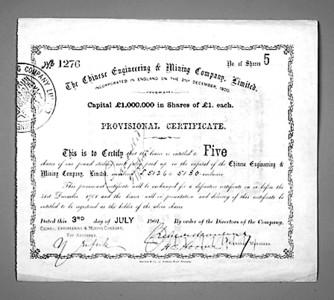 No 1276
No. of Shares 5
The Chinese Engineering & Mining Company, Limited.
INCORPORATED IN ENGLAND ON THE 21ST DECEMBER, 1900.
Capital £1,000,000 in Shares of £1. each.
PROVISIONAL CERTIFICATE.
This is to Certify that the bearer is entitled to Five
shares of one pound sterling each fully paid up in the capital of the Chinese Engineering &
Mining Company, Limited, numbered 25126 5130 inclusive
This provisional certificate will be exchanged for a definitive certificate on or before the
31st December 1901 and the bearer will on presentation and delivery of this certificate be
entitled to be registered as the holder of the above shares
Dated this 3RD day of JULY 1901. By order of the Directors of the Company.
CHINESE ENGINEERING & MINING COMPANY,